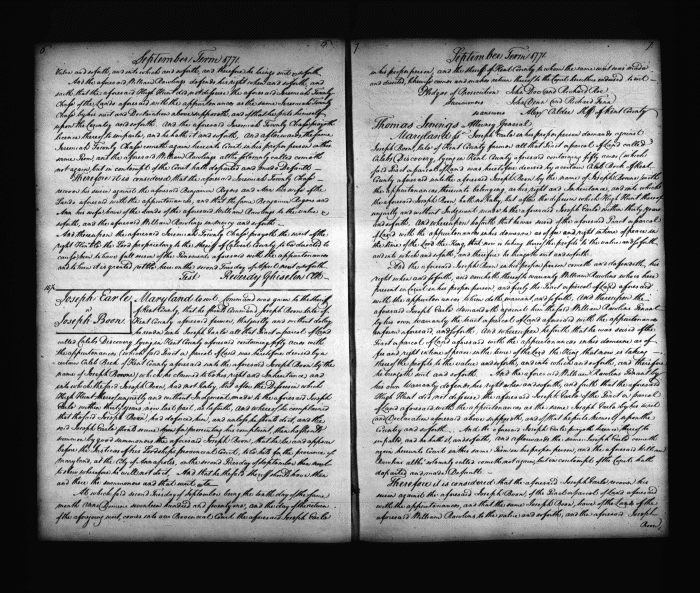 6
September Term 1771
Value and so forth, and into which and so forth, and therefore he brings suit and so forth
And the aforesaid William Rawlings defends his right when and so forth, and
saith that the aforesaid Hugh Hunt did not disseize the aforesaid Jeremiah Townly
Chase of the Lands aforesaid with the appurtenances as the same Jeremiah Townly
Chase by his writ and Declaration above supposeth, and of this he puts himself
upon the Country and so forth. And the aforesaid Jeremiah Townly Chase prayeth
licence thereof to imparle, and he hath it and so forth, and afterwards the same
Jeremiah Townly Chase cometh again here into Court in his proper person within the
same Term, and the aforesaid William Rawlings altho' solemnly called cometh
not again, but in contempt of the Court hath departed and made Default
Therefore it is considered that the aforesaid Jeremiah Townly Chase
recover his seisin against the aforesaid Benjamin Rogers and Ann his wife of the
Lands aforesaid with the appurtenances, and that the same Benjamin Rogers and
Ann his wife have of the Lands of the aforesaid William Rawlings to the value &
so forth, and the aforesaid William Rawlings in mercy and so forth
And thereupon the aforesaid Jeremiah Townly Chase prayeth the writ of the
right Honble the Lord proprietary to the Sheriff of County to be directed to
cause him to have full seisin of the Tenements aforesaid with the appurtenances
and to him it is granted returnable here on the second Tuesday of April next and so forth
Test Reverdy Ghiselin Clk
147
Joseph Earle
v
Joseph Boon
Maryland to wit Command was given to the Sheriff
of Kent County, that he should Command Joseph Boon late of
Kent County aforesaid farmer, that justly and without delay
he render unto Joseph Earle all that Tract or parcel of Land
called Calebs Discovery lying in Kent County aforesaid containing fifty acres with
the appurtenances (which said Tract or parcel of Land was heretofore devised by a
certain Caleb Beck of Kent County aforesaid unto the aforesaid Joseph Boon by the
name of Joseph Boone) which he claims to be his right and Inheritance, and
into which the said Joseph Boon, had not Entry, but after the Disseisin which
Hugh Hunt thereof unjustly and without Judgment, made to the aforesaid Joseph
Earle within thirty years now last past, as he saith, and whereof he complained
that the said Joseph Boon, had deforced him, and unless he should do it, and the
said Joseph Earle should secure him for prosecuting his complaint, then he should
summon by good summoners the aforesaid Joseph Boon, that he be and appear
before the Justices of his Lordships provincial Court, to be held for the province of
Maryland, at the City of Annapolis, on the second Tuesday of September then next
to shew wherefore he would not do it. And that the Sheriff should have then
and there the summoners and that writ &ca
At which said second Tuesday of September being the tenth day of the same
month Anno Domini seventeen hundred and seventy one, and the day of the return
of the aforegoing writ, comes into our Provincial Court the aforesaid Joseph Earle
7
September Term 1771
in his proper person, and the sheriff of Kent County to whom the same writ was directed
and directed, likewise comes and makes return thereof to the Court here thus indorsed to wit
Pledges of Prosecution John Doe and Richard Roe
Summoners John Denn and Richard Fenn
Sheriff of Kent County
Thomas Jennings Attorney General
Maryland ss Joseph Earle in his proper person demands against
Joseph Boon, late of Kent County farmer all that Tract or parcel of Land called
Calebs Discovery, lying in Kent County aforesaid containing fifty acres (which
said Tract or parcel of Land was heretofore devised by a certain Caleb Beck of Kent
County aforesaid unto the aforesaid Joseph Boon by the name of Joseph Boone) with
the appurtenances thereunto belonging, as his right and Inheritance, and into which
the aforesaid Joseph Boon hath no Entry, but after the disseisin which Hugh Hunt thereof
unjustly and without Judgment made to the aforesaid Joseph Earle within thirty years
and so forth. And whereupon he saith that he was seised of the aforesaid Tract or parcel
of Land with the appurtenances in his demesne as of fee and right in time of peace in
the time of the Lord the King that now is taking thereof the profits to the value and so forth
and into which and so forth, and therefore he brings suit and so forth.
And the aforesaid Joseph Boon in his proper person cometh and defendeth his
right when and so forth, and voucheth thereof to warranty William Rawlins who is here
present in Court in his proper person, and freely the Tract or parcel of Land aforesaid
with the appurtenances to him doth warrant and so forth, And thereupon the
aforesaid Joseph Earle demandeth against him the said William Rawlins Tenant
by his own Warranty the Tract or parcel of Land aforesaid with the appurtenances in
form aforesaid, and so forth. And whereupon he saith that he was seised of the
Tract or parcel of Land aforesaid with the appurtenances in his demesne as of
fee and right in time of peace in the time of the Lord the King that now is taking
thereof the profits to the value and so forth, and into which and so forth, and therefore
he brings suit and so forth. And the aforesaid William Rawlins Tenant by
his own Warranty defends his right when and so forth, and saith that the aforesaid
Hugh Hunt did not disseize the aforesaid Joseph Earle of the Tract or parcel
of Land aforesaid with the appurtenances as the same Joseph Earle by his writ
and Declaration aforesaid above supposeth, and of this he puts himself upon the
Country and so forth. And the aforesaid Joseph Earle prayeth licence thereof to
imparle, and he hath it, and so forth, and afterwards the same Joseph Earle cometh
again here into Court in this same Term in his proper person, and the aforesaid William
Rawlins altho' solemnly called cometh not again, but in contempt of the Court hath
departed and made Default.
Therefore it is considered that the aforesaid Joseph Earle recover his
seisin against the aforesaid Joseph Boon of the Tract or parcel of Land aforesaid
with the appurtenances, and that the same Joseph Boon, have of the Land of the
aforesaid William Rawlins to the value and so forth, and the aforesaid Joseph
Boon